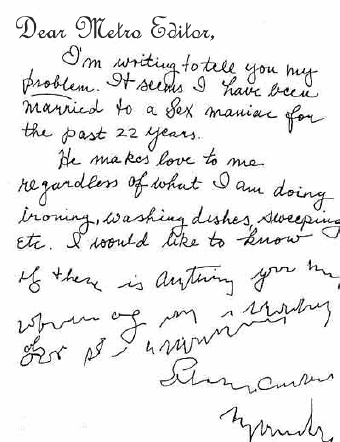 Dear Metro Editor,
I'm writing to tell you my
problem. It seems I have been
married to a sex maniac for
the past 22 years.
He makes love to me
regardless of what I am doing
ironing, washing dishes, sweeping
etc. I would like to know
if there is anything you